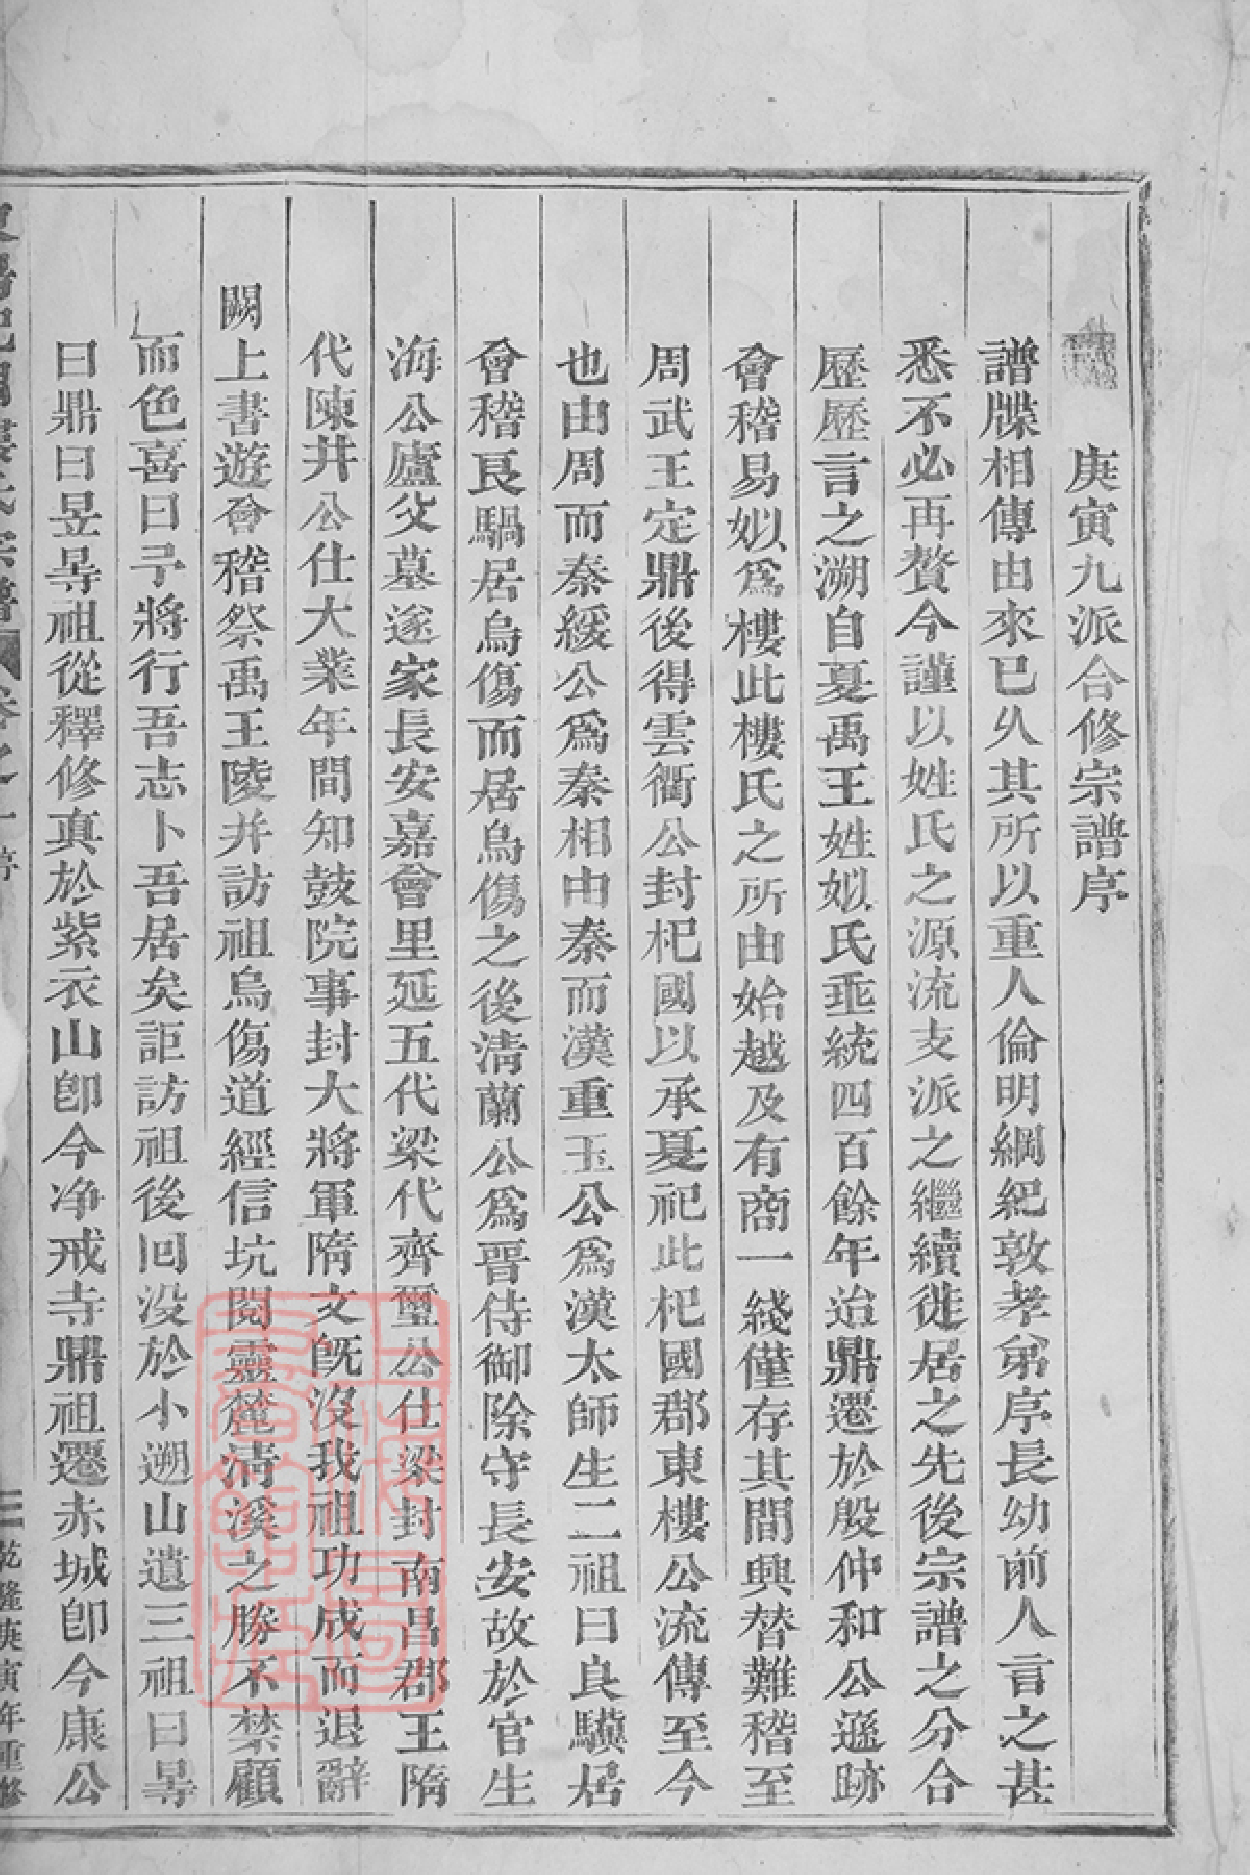 庚寅九派合修宗譜序
譜牒相傳由來已久其所以重人倫明綱紀敦孝弟序長幼前人言之甚
悉不必再贅今謹以姓氏之源流支派之繼續徙居之先後宗譜之分合
歷歷言之溯自夏禹王姓姒氏垂統四百餘年迨鼎遷於殷仲和公遜跡
會稽易姒爲樓此樓氏之所由始越及有商一綫僅存其間興替難稽至
周武王定鼎後得雲衢公封杞國以承夏祀此杞國郡東樓公流傳至今
也由周而秦綏公爲秦相由秦而漢重玉公爲漢太師生二祖曰良驥居
會稽良騧居烏傷而居烏傷之後清蘭公爲晋侍御除守長安故於官生
海公廬父墓遂家長安嘉會里延五代梁代齊璽公仕梁封南昌郡王隋
代陳井公仕大業年間知鼓院事封大將軍隋文旣沒我祖功成而退辭
闕上書遊會稽祭禹王陵并訪祖烏傷道經信坑閱靈麓清溪之勝不禁顧
而色喜曰予將行吾志卜吾居矣詎訪祖後回沒於小遡山遺三祖曰晜
曰鼎曰昱晜祖從釋修真於紫衣山卽今净戒寺鼎祖遷赤城卽今康公
氏宗譜 卷之一 序 三 乾隆 寅年重修